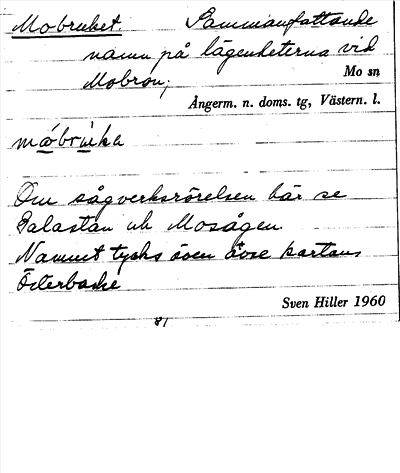 Mobruket. Sammanfattande
namn på lägenheterna vid
Mobron; Mo sn
Ångerm. n. doms. tg, Västern. l.
mobruka
Om sågverksrörelsen här se
Balastan och Mosågen.
Namnet tycks även avse kartans
Österbacke
Sven Hiller 1960
81